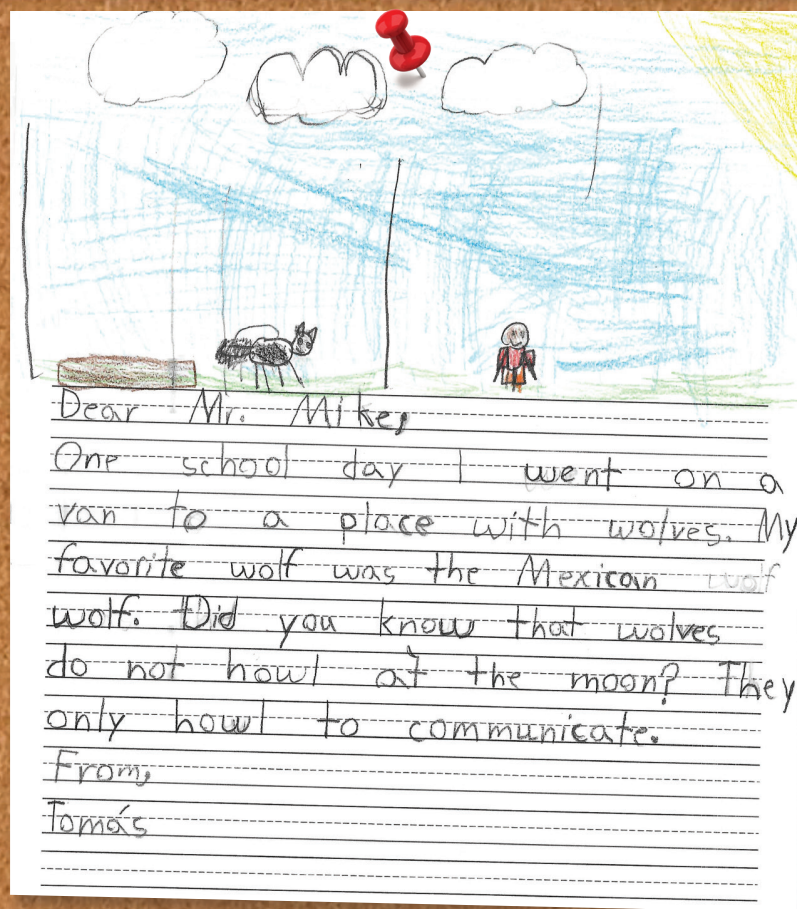 Dear Mr. Mike,
One school day I went on a
van to a place with wolves. My
favorite wolf was the Mexican wolf
wolf. Did you know that wolves
do not howl at the moon? They
only howl to communicate.
From,
Tomás